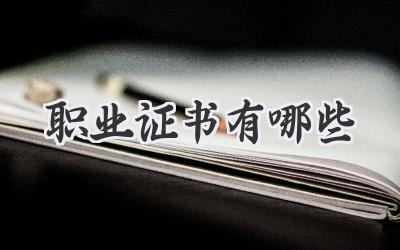 职业证书有哪些